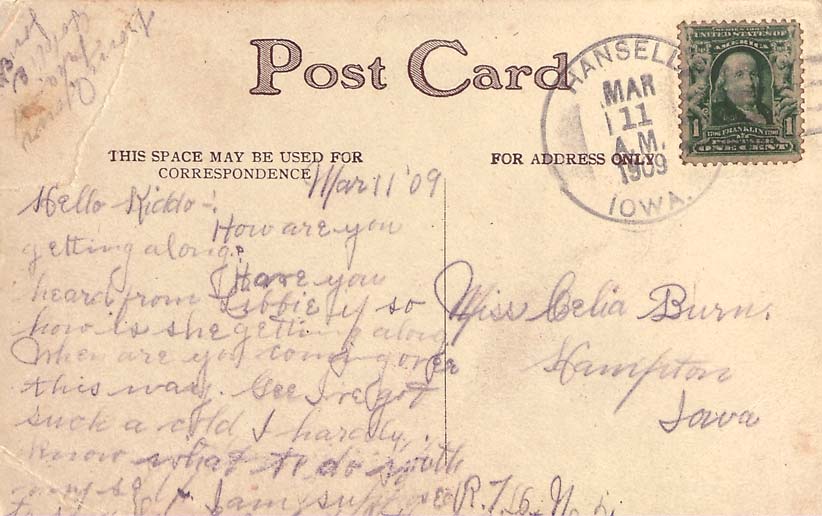 Post Card
THIS SPACE MAY BE USED FOR
CORRESPONDENCE
FOR ADDRESS ONLY
HANSELL
MAR
11
A.M.
1909
IOWA.
SERIES 1902
UNITED STATES OF
AMERICA
1
FRANKLIN
1
POSTAGE
ONE CENT
Mar 11 '09
Hello Kiddo -!
How are you
getting along?
Have you
heard from Libbie if so
how is she getting along
When are you coming over
this way. Gee I've got
such a cold I hardly
know what to do with
myself. I am
Miss Celia Burn.
Hampton
Iowa
R.F.D. N